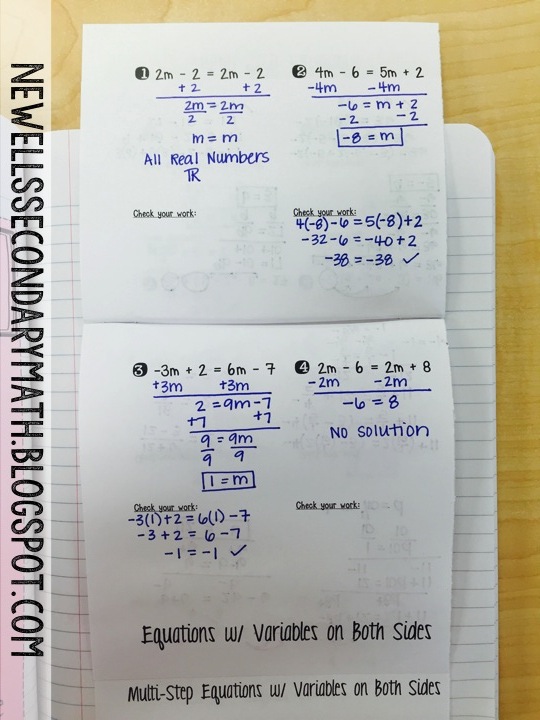 NEWELLSSECONDARYMATH.BLOGSPOT.COM
1 2m - 2 = 2m - 2
+ 2 + 2
2m = 2m
2 2
m = m
All Real Numbers
ℝ
Check your work:
2 4m - 6 = 5m + 2
-4m -4m
-6 = m + 2
-2 - 2
-8 = m
Check your work:
4(-8)-6 = 5(-8)+2
-32-6 = -40+2
-38 = -38 ✓
3 -3m + 2 = 6m - 7
+3m +3m
2 = 9m-7
+7 +7
9 = 9m
9 9
1 = m
Check your work:
-3(1)+2 = 6(1)-7
-3+2 = 6-7
-1 = -1 ✓
4 2m - 6 = 2m + 8
-2m -2m
-6 = 8
No solution
Check your work:
Equations w/ Variables on Both Sides
Multi-Step Equations w/ Variables on Both Sides